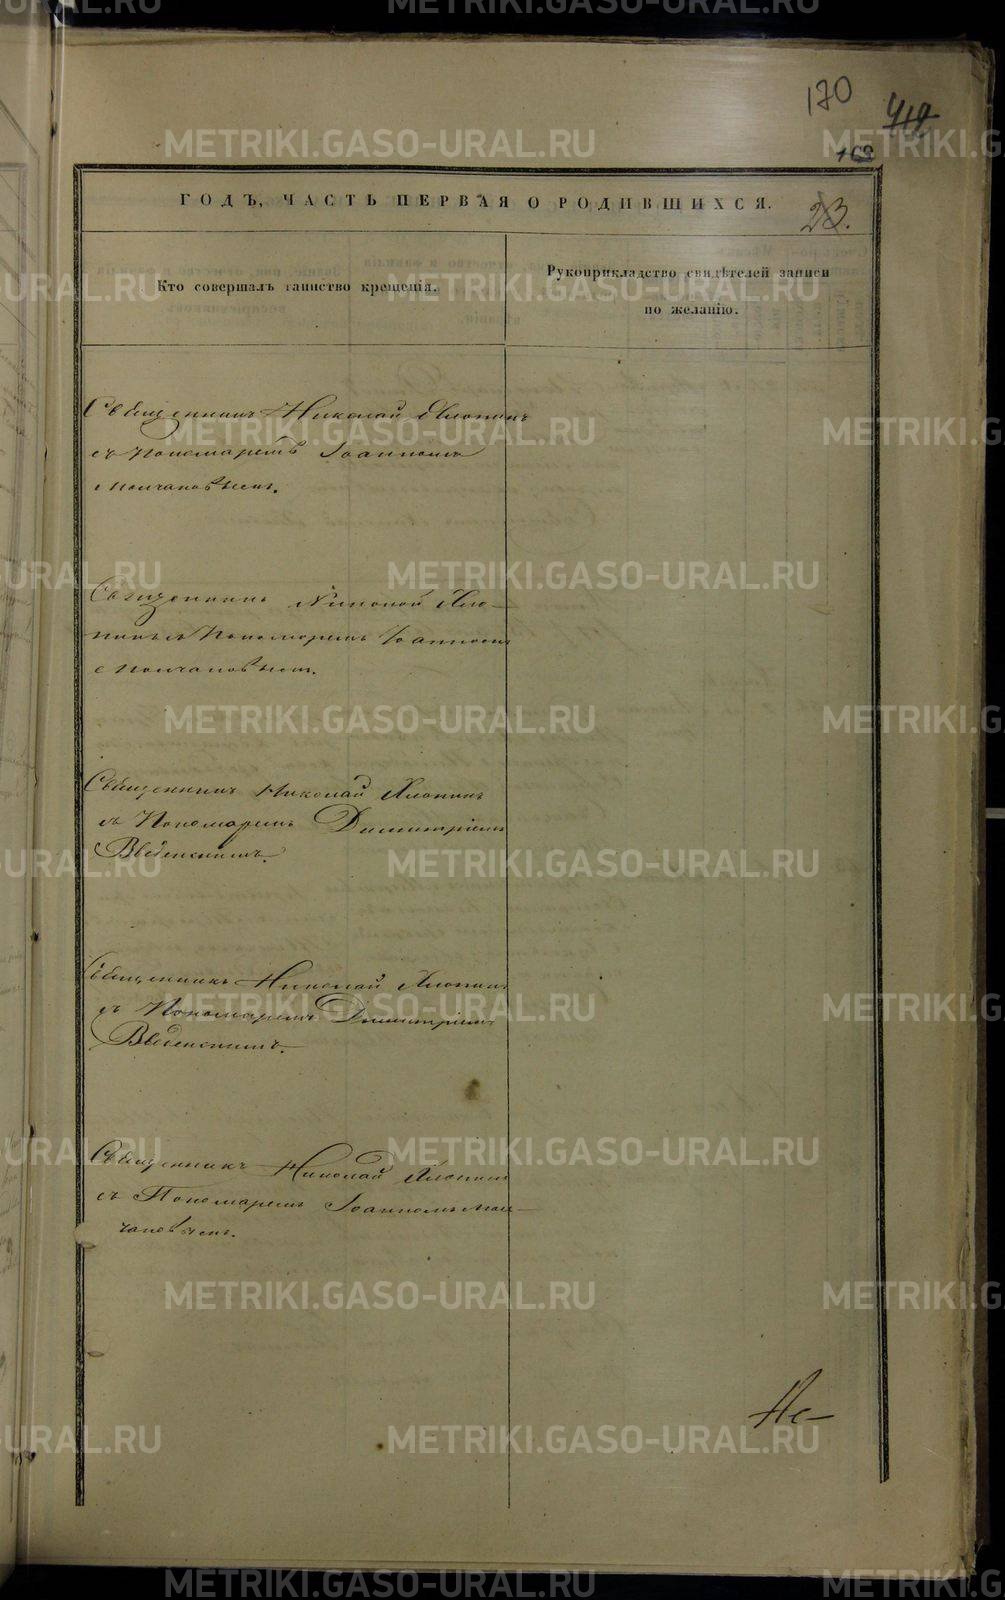 170
419
169
ГОДЪ, ЧАСТЬ ПЕРВАЯ О РОДИВШИХСЯ.
23.
Кто совершалъ таинство крещенія.
Рукоприкладство свидѣтелей записи
по желанію.
Священникъ Николай Хлопинъ
съ Пономаремъ Іоанномъ
Молчановымъ.
Священникъ Николай Хло-
пинъ съ Пономаремъ Іоанномъ
Молчановымъ.
Священникъ Николай Хлопинъ
съ Пономаремъ Димитріемъ
Введенскимъ.
Священникъ Николай Хлопинъ
съ Пономаремъ Димитріемъ
Введенскимъ.
Священникъ Николай Хлопинъ
съ Пономаремъ Іоанномъ Мол-
чановымъ.
Не-
METRIKI.GASO-URAL.RU